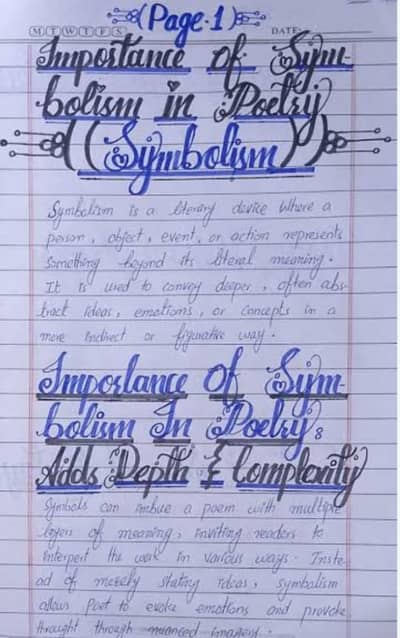 (Page·1)
M T W T F S DATE:
Importance Of Sym-
bolism in Poetry
((Symbolism))
Symbolism is a literary device where a
person, object, event, or action represents
something beyond its literal meaning.
It is used to convey deeper, often abs-
tract ideas, emotions, or concepts in a
more indirect or figurative way.
Importance Of Sym-
bolism In Poetry:
Adds Depth & Complexity
Symbols can imbue a poem with multiple
layers of meaning, inviting readers to
interpert the work in various ways. Inste-
ad of merely stating ideas, symbolism
allows Poet to evoke emotions and provoke
throught through nuanced imagery.